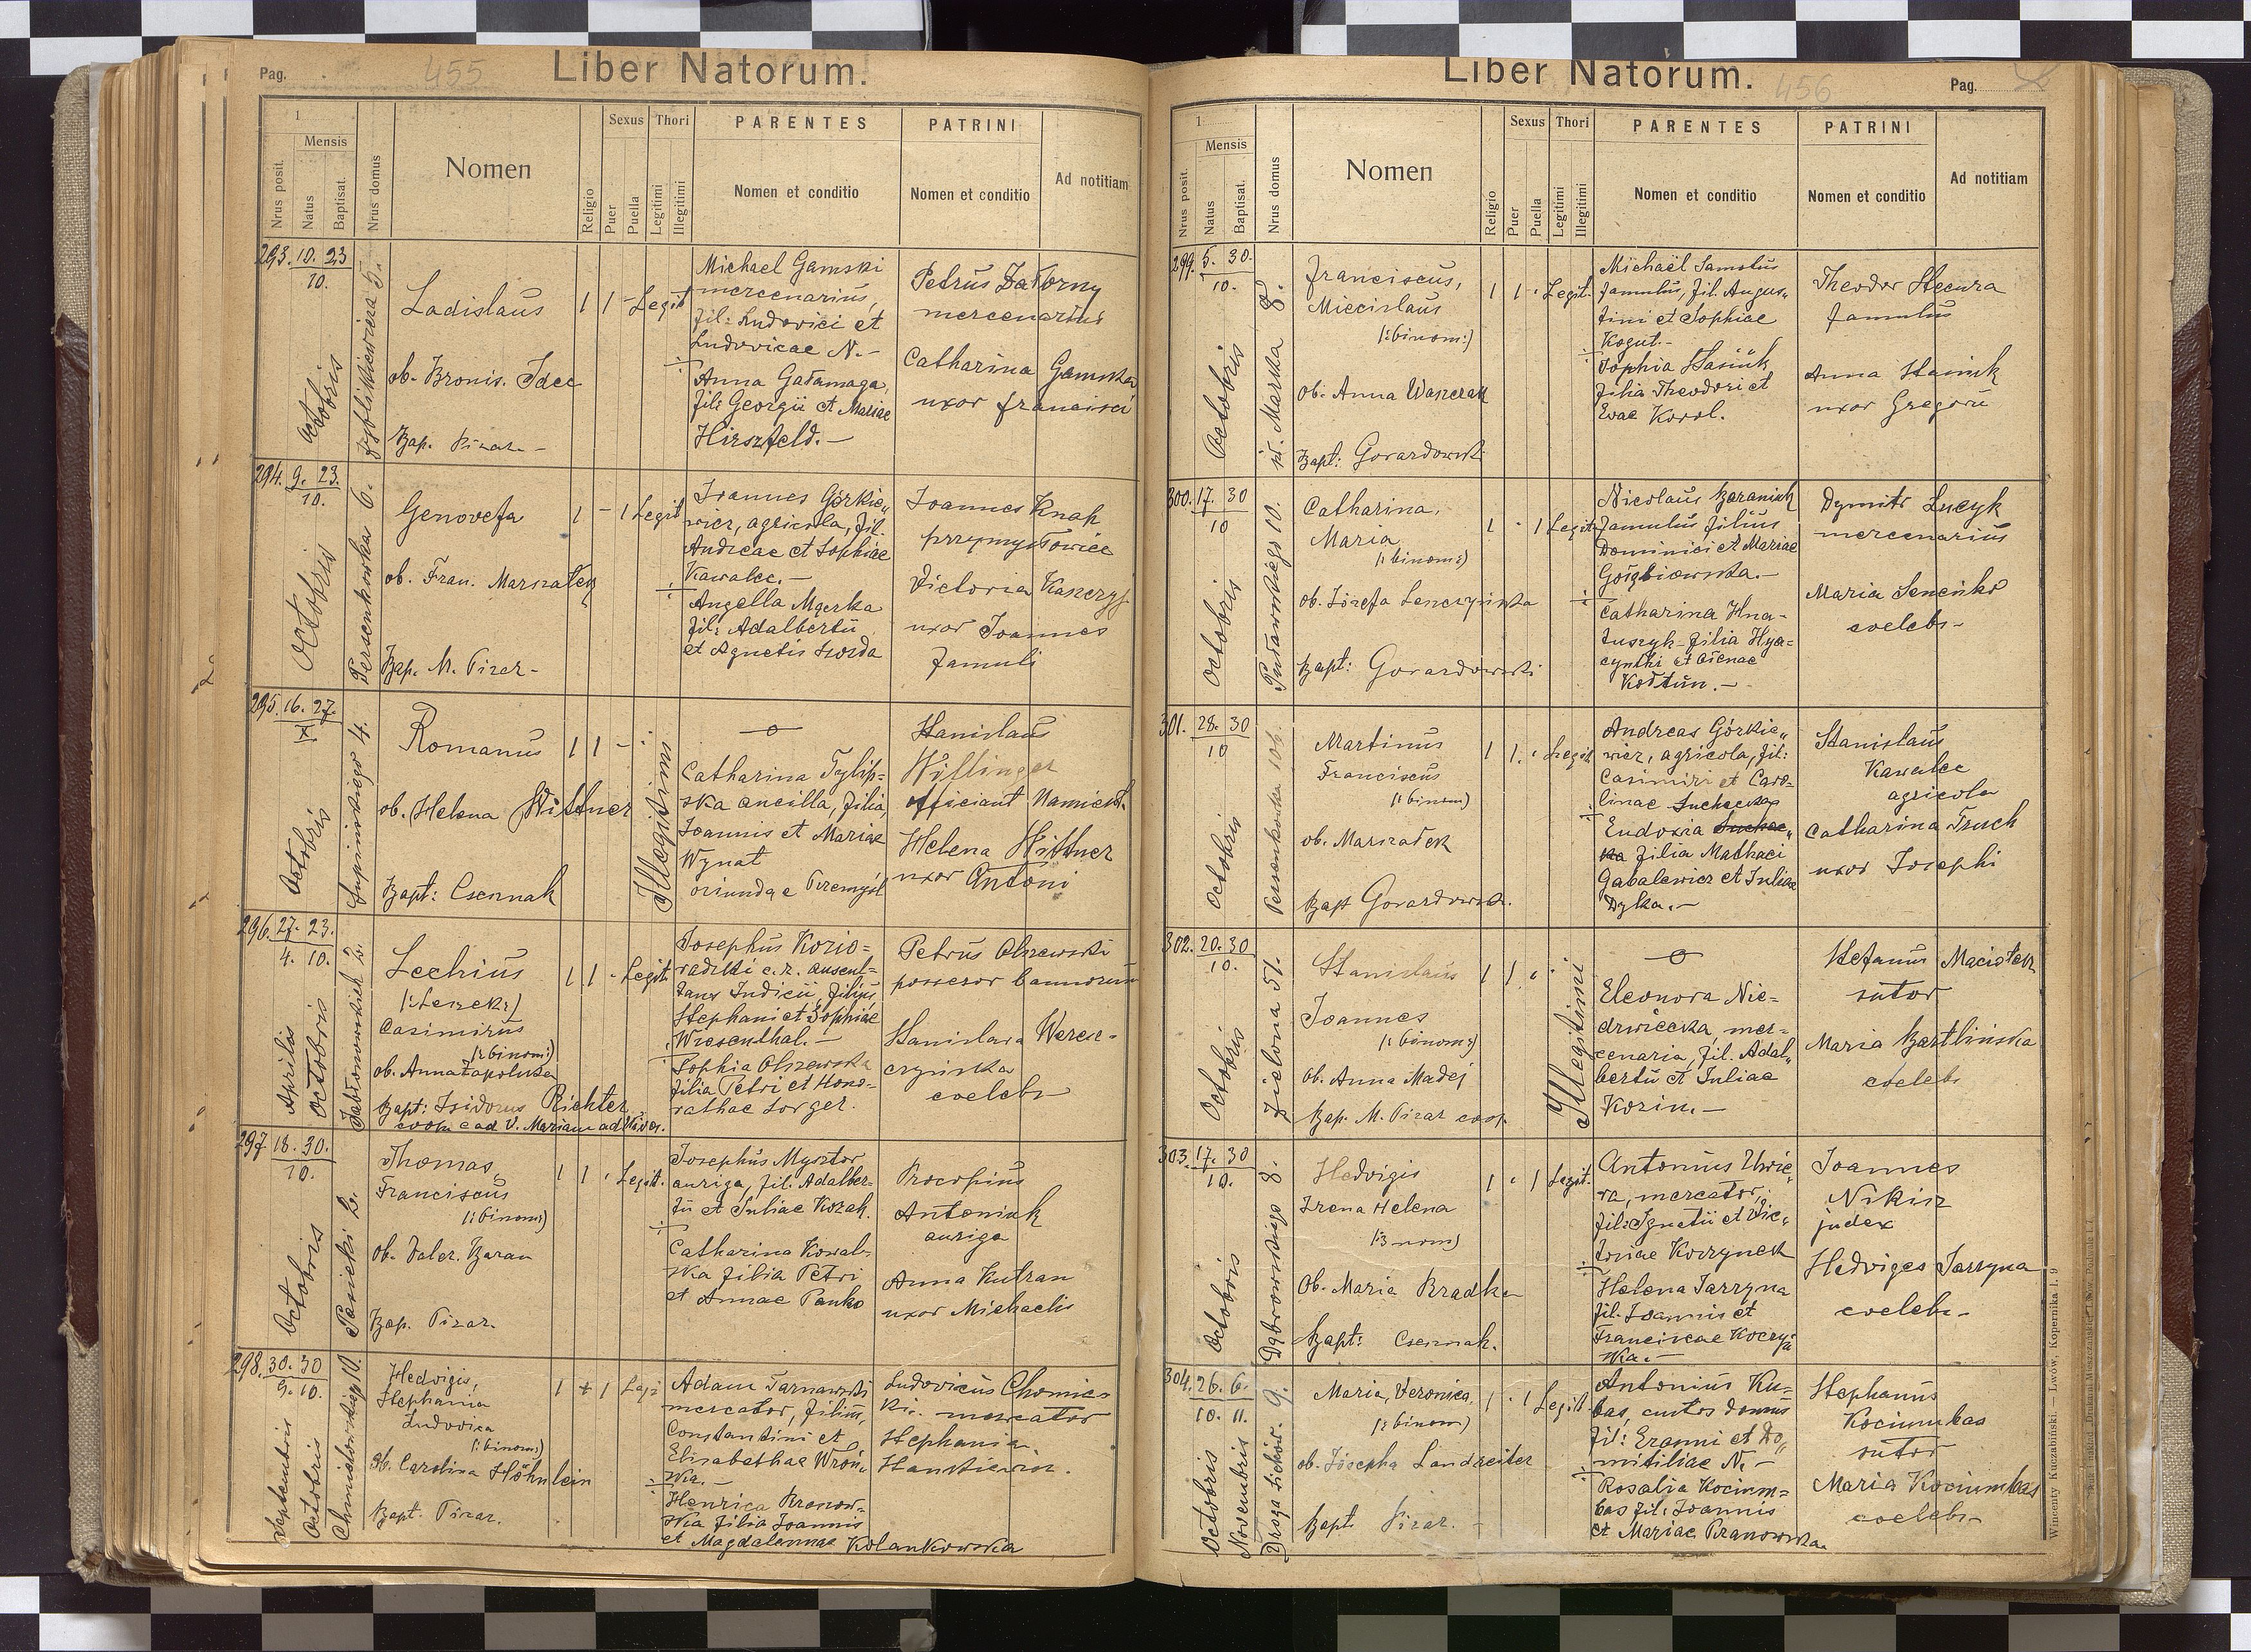 Pag. 455 Liber Natorum.
1
Mensis
Nrus posit.
Natus
Baptisat.
Nrus domus
Nomen
Religio
Sexus
Puer
Puella
Thori
Legitimi
Illegitimi
PARENTES
Nomen et conditio
PATRINI
Nomen et conditio
Ad notitiam
293. 10. 23
10.
Octobris
Ladislaus
ob. Bronis. Idec
Bap. Pizar.-
1 1 - Legit
Michael Gamski
mercenarius,
fil: Ludovici et
Ludovicae N.-
Anna Gałamaga,
fil: Georgii et Mariae
Hirszfeld.-
Petrus Zatorny
mercenarius
Catharina Gamska
uxor Francisci
294. 9. 23.
10.
Octobris
Persenkowka 6.
Genovefa
ob. Fran. Marszałek
Bap. M. Pizar-
1 - 1 Legit
Joannes Górkie„
wicz, agricola, fil.
Andreae et Sophiae
Kawalec.-
Angella Mączka
fil: Adalberti
et Agnetis
Joannes Knap
przemysłowiec
Victoria
uxor Joannes
famuli
295. 16. 27.
X
Octobris
Supinskiego 4.
Romanus
ob. Helena Hittner
Bapt: Csernak
1 1 -
Illegitimi
Catharina
ska ancilla, filia
Joannis et Mariae
Wynat
oriundae Przemyśl
Stanislaus
Willinger
officiant Namiest.
Helena Hittner
uxor Antoni
296. 27. 23.
4. 10.
Aprilis
Octobris
Jabłonowskich 2.
Lechius
(:Leszek:)
Casimirus
(:binom:)
ob. Anna
Bapt: Isidorus Richter
coop. ad V. Mariam ad Nives.
1 1 - Legit.
Josephus Kozio=
radzki c. r. auscul=
tans Judicii, filius
Stephani et Sophiae
Wiesenthal.-
Sophia Olszewska
filia Petri et Hono=
rathae Sorger.
Petrus Olszewski
possesor bannorum
Stanislava Weresz-
czyńska
coelebs
297 18. 30.
10.
Octobris
Pasieki 2.
Thomas,
Franciscus
(:binom:)
ob. Valer. Baran
Bap. Pizar.
1 1 Legit.
Josephus Mysztor
auriga, fil. Adalber=
ti et Juliae Kozak.
Catharina Kowal-
ska filia Petri
et Annae Panko
Procopius
Antoniuk
auriga
Anna Kutran
uxor Michaelis
298. 30. 30
9. 10.
Septembris
Octobris
Chmielowskiego 10.
Hedvigis,
Stephania
Ludovica
(:binom:)
Ob. Carolina Höhnlein
Bapt. Pizar.
1 + 1 Legi
Adam Tarnawski
mercator, filius,
Constantini et
Elisabethae Wron„
ska.-
Henrica Bronow-
ska filia Joannis
et Magdalennae Kolankowska
Ludovicus Chomic
ki. mercator
Stephania
Stankiewicz.
Liber Natorum. 456 Pag.
1
Mensis
Nrus posit.
Natus
Baptisat.
Nrus domus
Nomen
Religio
Sexus
Puer
Puella
Thori
Legitimi
Illegitimi
PARENTES
Nomen et conditio
PATRINI
Nomen et conditio
Ad notitiam
299. 5. 30.
10.
Octobris
św. Marka 8.
Franciscus,
Miecislaus
(:binom:)
ob. Anna Waszczak
Bapt: Gorazdowski
1 1 - Legit.
Michaël Samolus
famulus, fil. Augus„
tini et Sophiae
Kogut.-
Sophia Stasiuk
filia Theodori et
Evae Korol.
Theodor Stecura
famulus
Anna Stasiuk
uxor Gregorii
300. 17. 30
10
Octobris
Pułaskiego 10.
Catharina,
Maria
(:binom:)
ob. Józefa Lenczyńska
Bapt: Gorazdowski
1 - 1 Legit.
Nicolaus Baraniuk
famulus filius
Dominici et Mariae
Gołębiowska.-
Catharina Hna-
tuszyk filia Hya=
cynthi et Oienae
Kołtun.-
Dymitr Łucyk
mercenarius
Maria Senenko
coelebs-
301. 28. 30
10
Octobris
Persenkowka 106.
Martinus
Franciscus
(:binom)
ob. Marszałek
Bapt Gorazdowski.
1 1. Legit
Andreas Górkie„
wicz, agricola, fil:
Casimiri et Caro-
linae Suchecka
Eudoxia Suchec„
ka filia Mathaei
Gabalewicz et Juliae
Dyka.-
Stanislaus
Kawalec
agricola
Catharina Truch
uxor Josephi
302. 20. 30
10.
Octobris
Zielona 51.
Stanislaus
Joannes
(:binom:)
Ob. Anna Madej
Bap. M. Pizar coop.
1 1
Illegitimi
Eleonora Nie-
dzwiecka, mer-
cenaria, fil. Adal„
berti et Juliae
Kozin.-
Stefanus Maciołek
sutor
Maria Bartlińska
coelebs
303. 17. 30
10.
Octobris
Dąbrowskiego 8.
Hedvigis
Irena Helena
(:3 nom)
Ob. Maria Bradka
Bapt: Csernak.
1 1 Legit.
Antonius Uwie„
ra, mercator,
fil: Ignatii et Vic„
toriae Korzynek
Helena Jarzyna
fil. Joannis et
Franciscae Koczyń
ska.-
Joannes
Nikisz
judex
Hedviges Jarzyna
coelebs-
304. 26. 6.
10. 11.
Octobris
Novembris
Droga Sichow. 9.
Maria, Veronica,
(:binom)
ob. Josepha Landreiter
Bapt. Pizar. -
1 1 Legit.
Antonius Ku=
bas, custos domus
fil: Erasmi et Do„
mitiliae N.-
Rosalia Kocium=
bas fil. Joannis
et Mariae Pranowska.
Stephanus
Kociumbas
sutor
Maria Kociumbas
coelebs-
Wincenty Kuczabiński. — Lwów, Kopernika l. 9